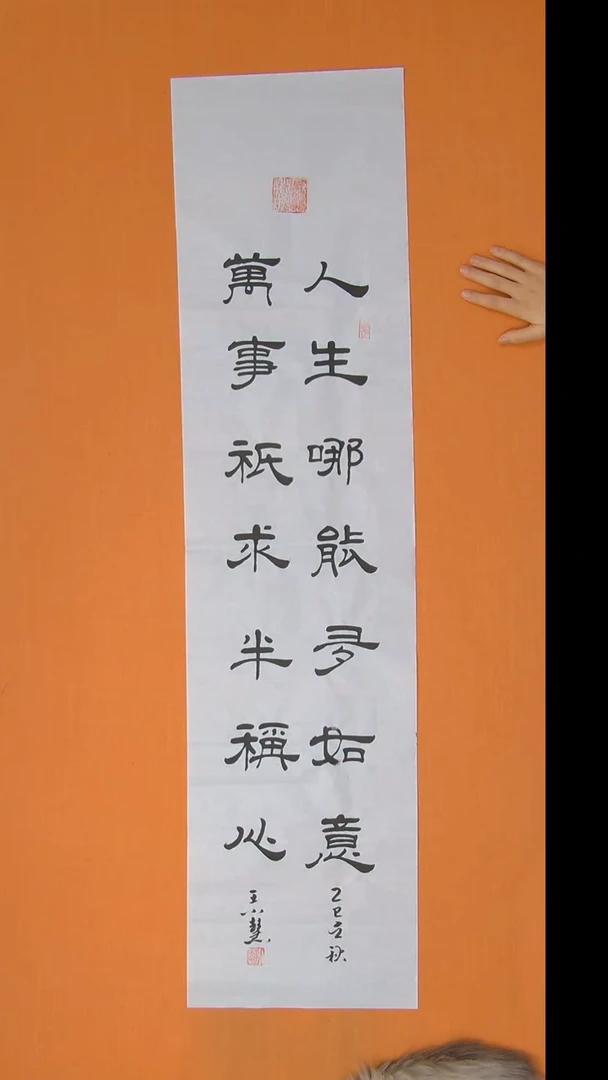 人生哪能多如意
乙巳立秋
萬事祇求半稱心
王小慧